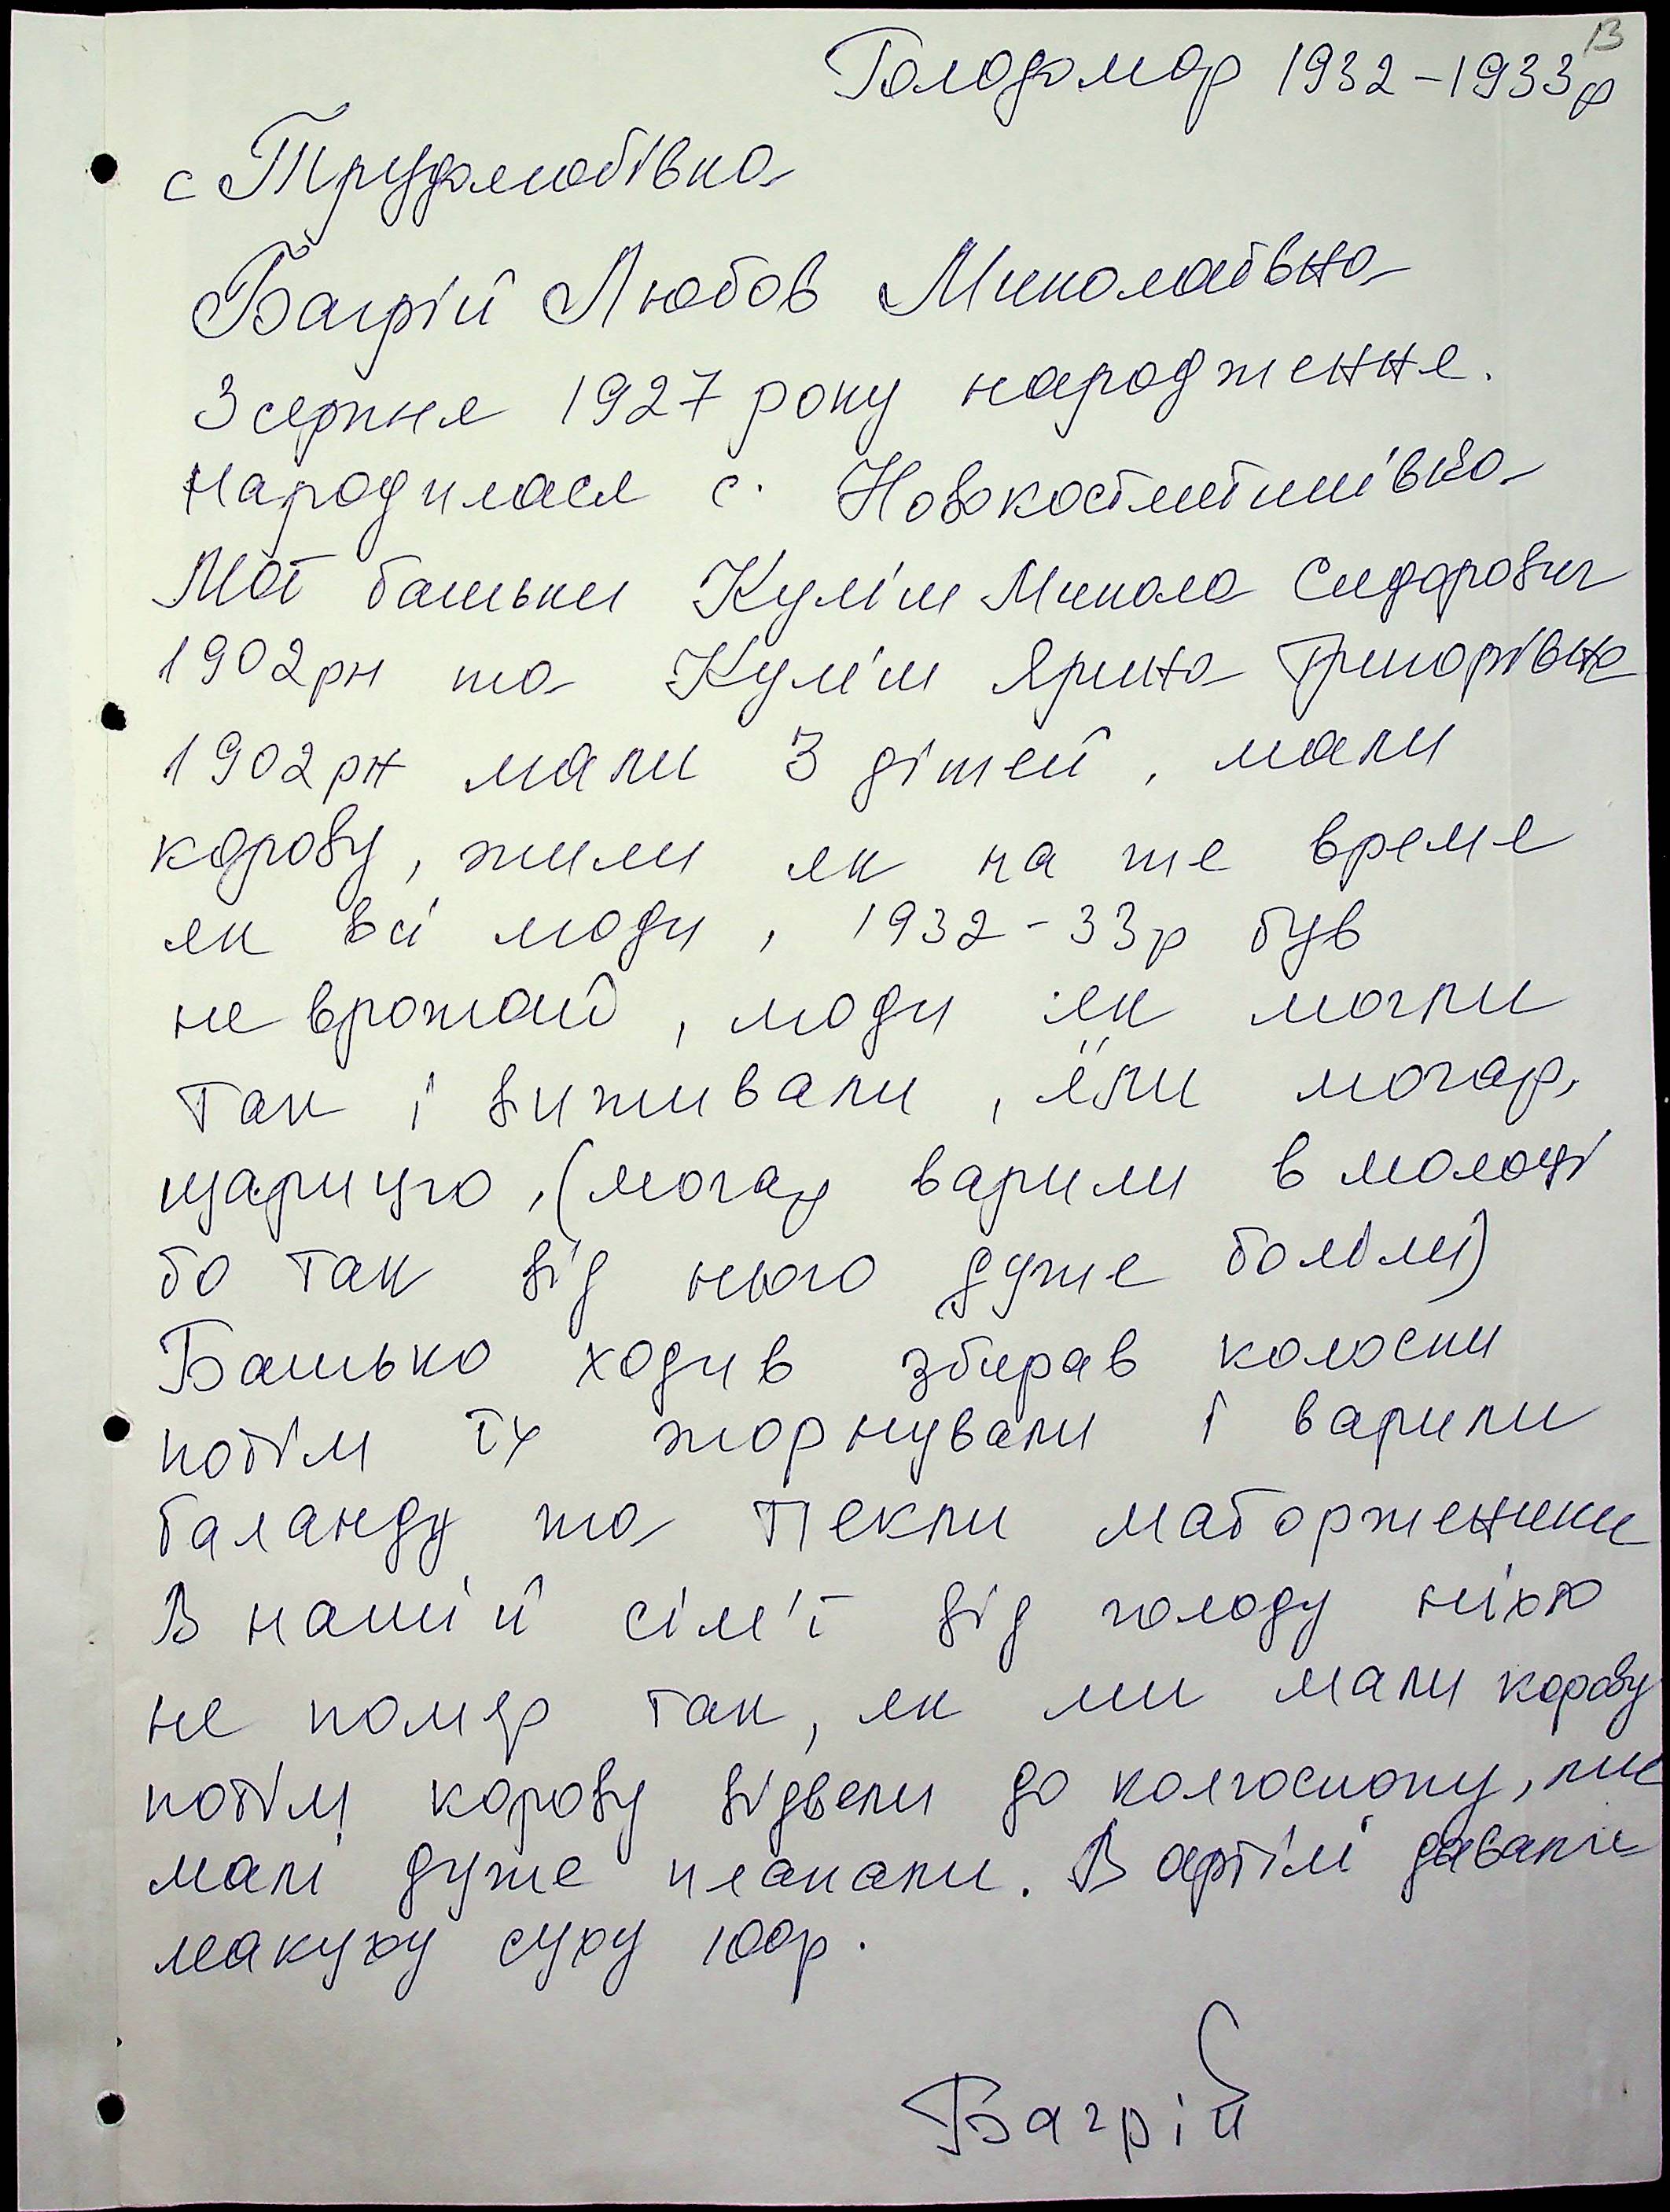 13
Голодомор 1932-1933р
с Трудолюбівка
Багрій Любов Миколаївна
3 серпня 1927 року народження.
народилася с.
Мої батьки Куліш Микола Сидорович
1902рн та Куліш Ярина Григорівна
1902рн мали 3 дітей, мали
корову, жили як на те время
як всі люди, 1932-33р був
не врожай, люди як могли
так і виживали, їли могар,
щарицю, (могар варили в молоці
бо так від нього дуже боліли)
Батько ходив збирав колоски
потім їх жорнували і варили
баланду та пекли маторженики
В нашій сім'ї від голоду ніхто
не помер так, як ми мали корову
потім корову відвели до колгоспу, ми
малі дуже плакали. В артілі давали
макуху суху 100гр.
Багрій